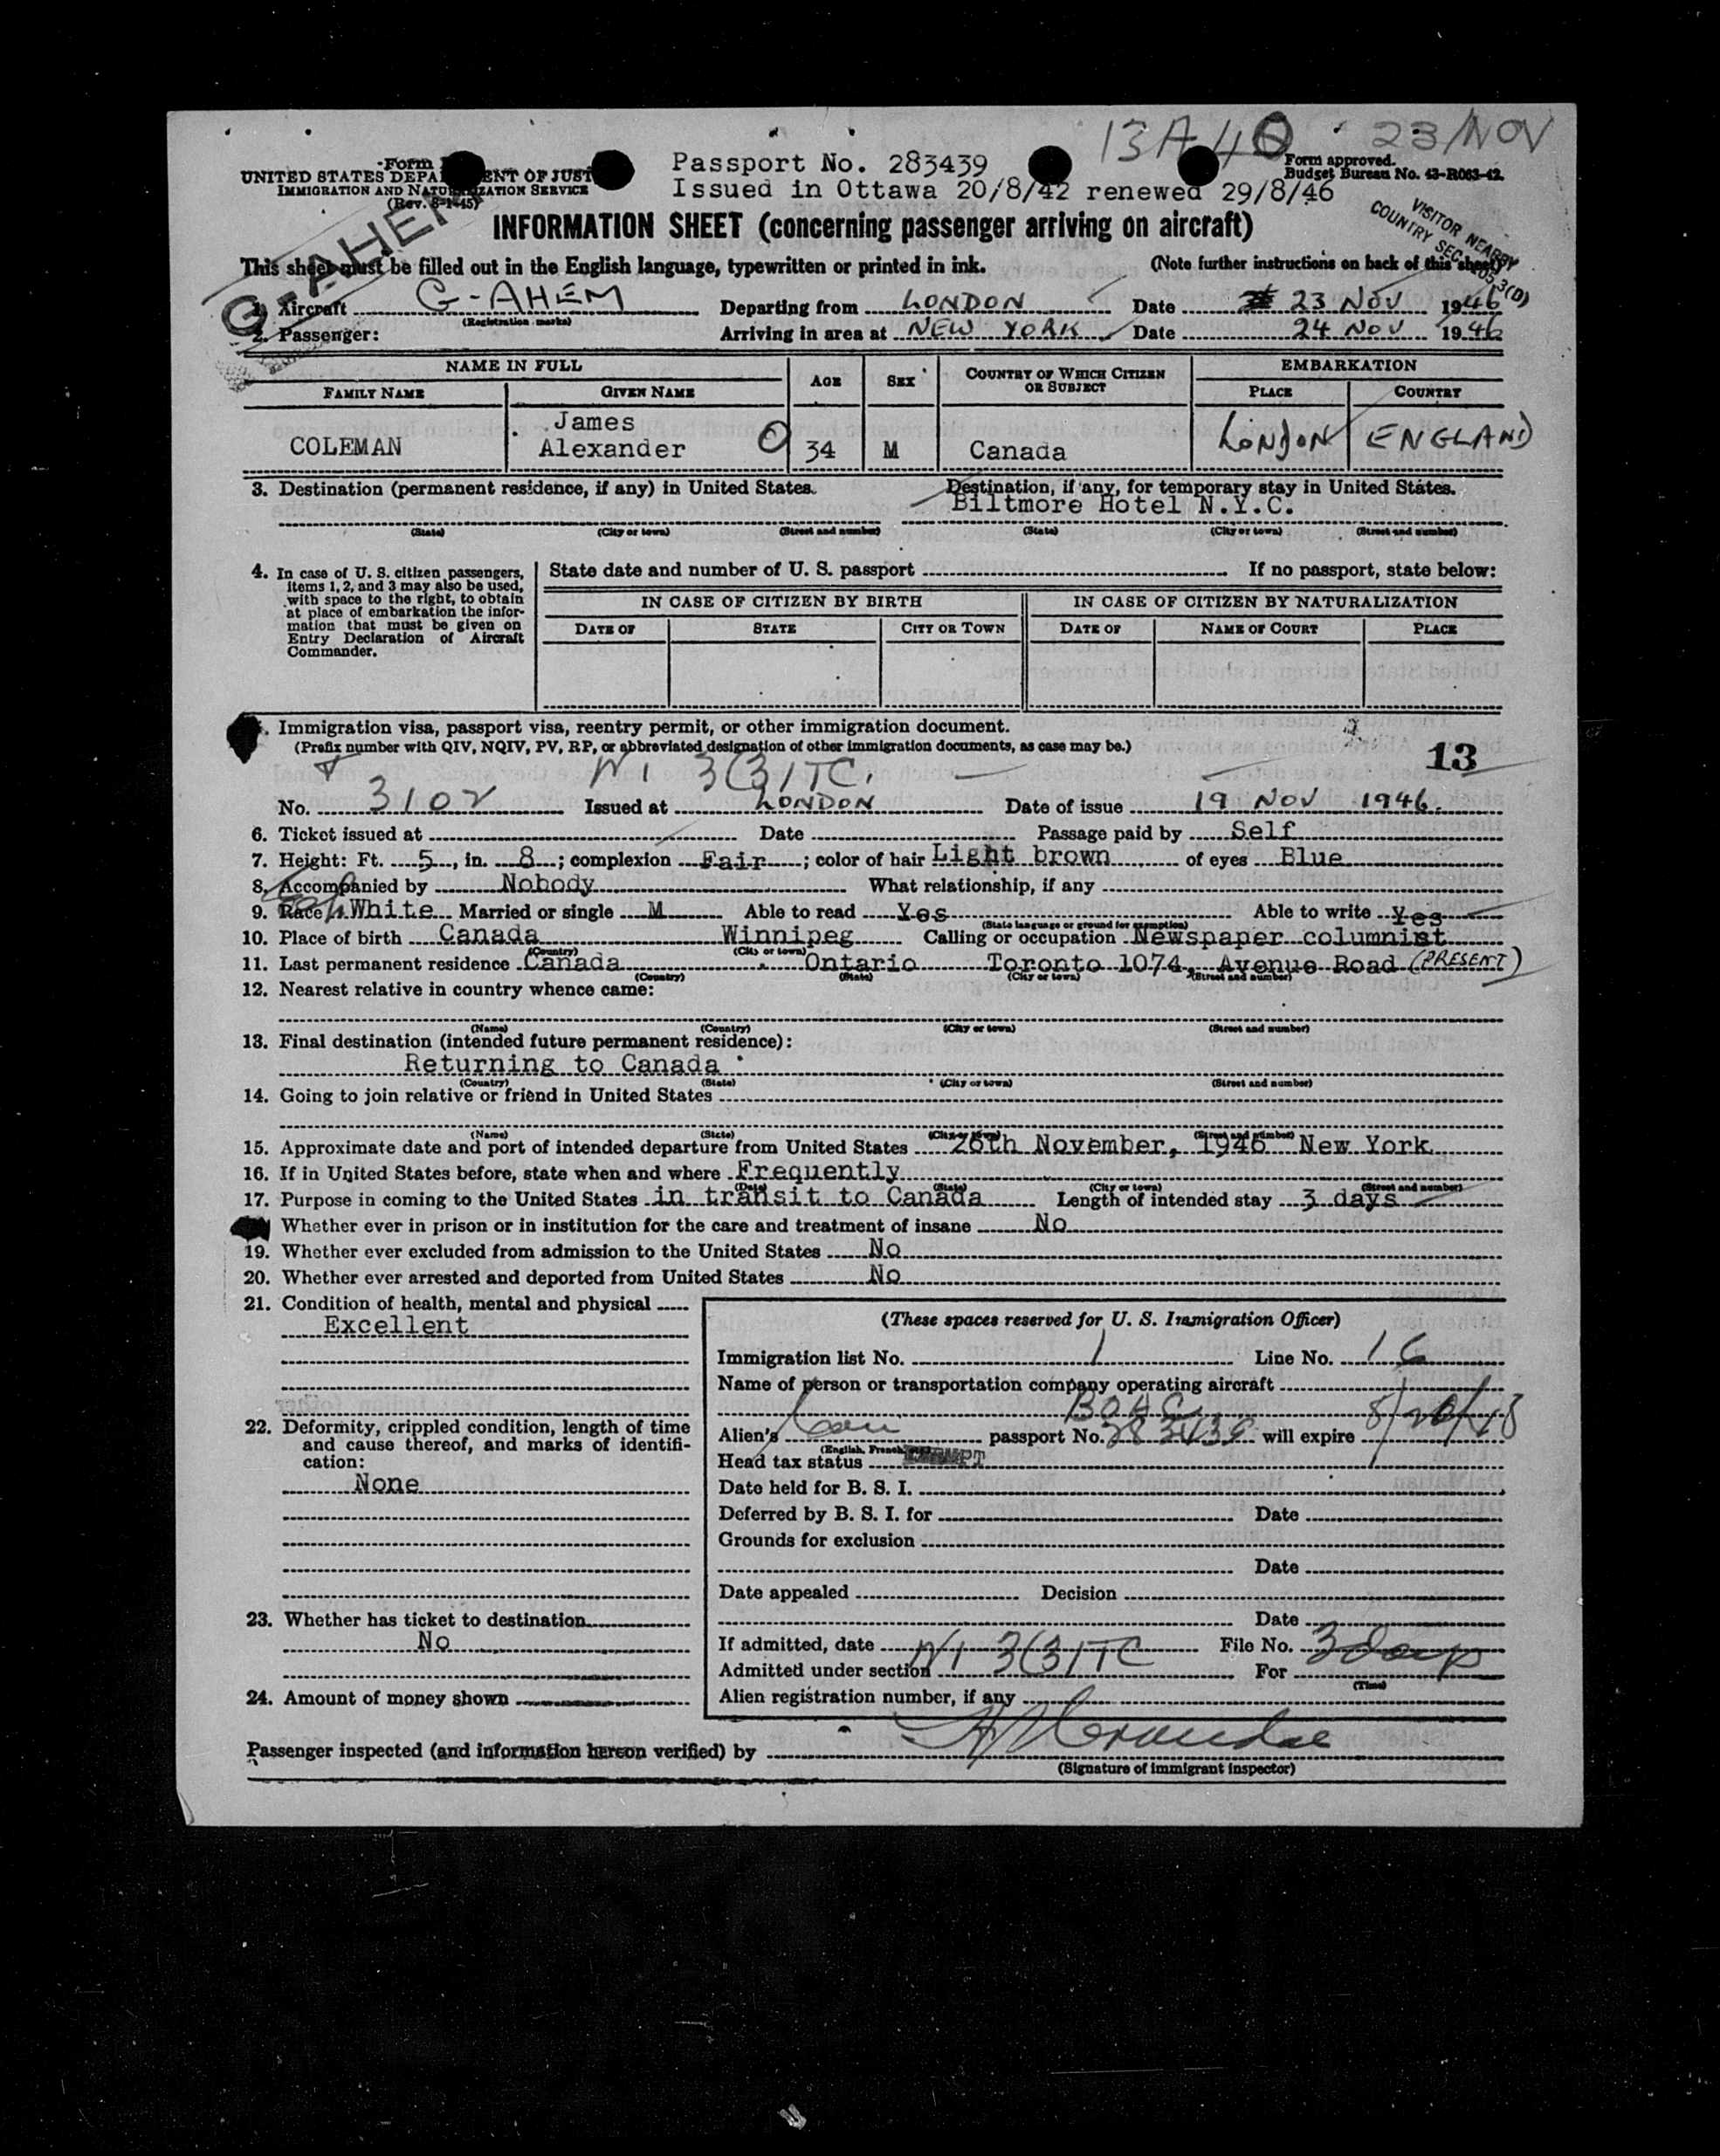 13A40 23/NOV
Form
UNITED STATES DEPA ENT OF JUST
IMMIGRATION AND NATU IZATION SERVICE
(Rev. 8-1-45)
Passport No. 283439
Issued in Ottawa 20/8/42 renewed 29/8/46
Form approved.
Budget Bureau No. 43-R063-42.
G-AHEM
VISITOR NEARBY
COUNTRY SEC. 3(D)
INFORMATION SHEET (concerning passenger arriving on aircraft)
This sheet must be filled out in the English language, typewritten or printed in ink. (Note further instructions on back of this sheet)
1. Aircraft G-AHEM Departing from LONDON Date 23 NOV 1946
(Registration marks)
2. Passenger: Arriving in area at NEW YORK Date 24 NOV 1946
NAME IN FULL AGE SEX COUNTRY OF WHICH CITIZEN OR SUBJECT EMBARKATION
FAMILY NAME GIVEN NAME PLACE COUNTRY
COLEMAN James Alexander 34 M Canada LONDON ENGLAND
3. Destination (permanent residence, if any) in United States. Destination, if any, for temporary stay in United States.
Biltmore Hotel N.Y.C.
(State) (City or town) (Street and number) (State) (City or town) (Street and number)
4. In case of U. S. citizen passengers, items 1, 2, and 3 may also be used, with space to the right, to obtain at place of embarkation the information that must be given on Entry Declaration of Aircraft Commander.
State date and number of U. S. passport If no passport, state below:
IN CASE OF CITIZEN BY BIRTH IN CASE OF CITIZEN BY NATURALIZATION
DATE OF STATE CITY OR TOWN DATE OF NAME OF COURT PLACE
. Immigration visa, passport visa, reentry permit, or other immigration document.
(Prefix number with QIV, NQIV, PV, RP, or abbreviated designation of other immigration documents, as case may be.) 13
3(3)TC
No. 3102 Issued at LONDON Date of issue 19 NOV 1946.
6. Ticket issued at Date Passage paid by Self
7. Height: Ft. 5, in. 8; complexion Fair; color of hair Light brown of eyes Blue
8. Accompanied by Nobody What relationship, if any
9. Race White Married or single M Able to read Yes Able to write Yes
(State language or ground for exemption)
10. Place of birth Canada Winnipeg Calling or occupation Newspaper columnist
(Country) (City or town)
11. Last permanent residence Canada Ontario Toronto 1074, Avenue Road (PRESENT)
(Country) (State) (City or town) (Street and number)
12. Nearest relative in country whence came:
(Name) (Country) (City or town) (Street and number)
13. Final destination (intended future permanent residence):
Returning to Canada
(Country) (State) (City or town) (Street and number)
14. Going to join relative or friend in United States
(Name) (State) (City or town) (Street and number)
15. Approximate date and port of intended departure from United States 26th November, 1946 New York
16. If in United States before, state when and where Frequently
(Date) (State) (City or town) (Street and number)
17. Purpose in coming to the United States in transit to Canada Length of intended stay 3 days
Whether ever in prison or in institution for the care and treatment of insane No
19. Whether ever excluded from admission to the United States No
20. Whether ever arrested and deported from United States No
21. Condition of health, mental and physical
Excellent
22. Deformity, crippled condition, length of time and cause thereof, and marks of identification:
None
23. Whether has ticket to destination
No
24. Amount of money shown
(These spaces reserved for U. S. Immigration Officer)
Immigration list No. 1 Line No. 16
Name of person or transportation company operating aircraft
BOAC
Alien's Can passport No. 283439 will expire 8/20/48
(English, French,
Head tax status
Date held for B. S. I.
Deferred by B. S. I. for Date
Grounds for exclusion
Date
Date appealed Decision
Date
If admitted, date File No.
Admitted under section 3(3)TC For 3 days
(Time)
Alien registration number, if any
Passenger inspected (and information hereon verified) by
(Signature of immigrant inspector)